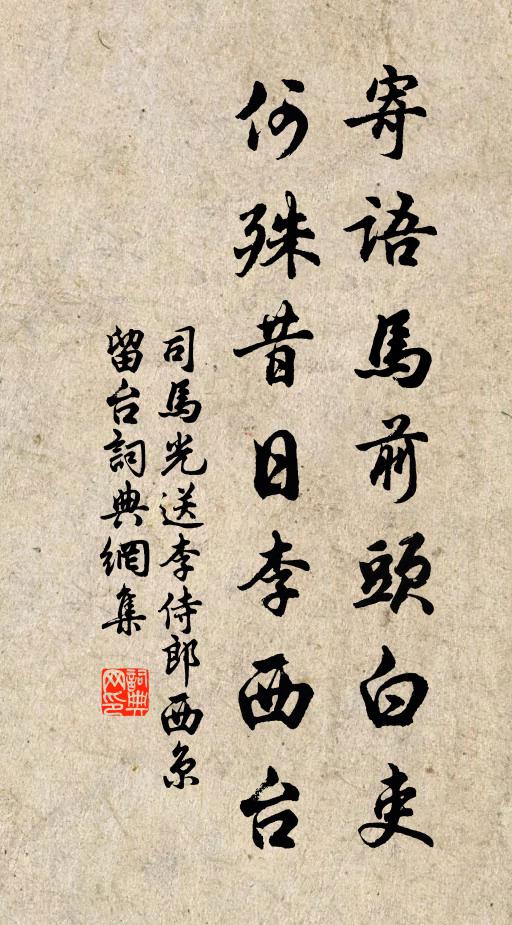 寄語馬前頭白吏
何殊昔日李西台
司馬光送李侍郎西京
留台詞典網集
詞典网印